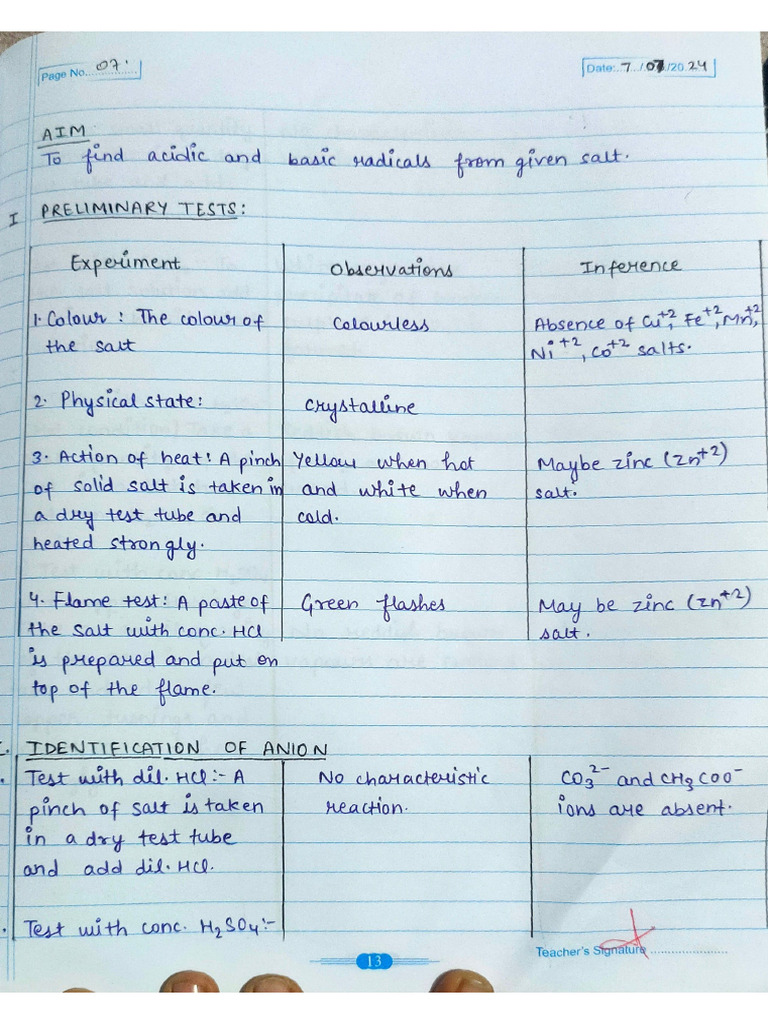 Page No. 07.
Date: 7/07/2024
AIM
To find acidic and basic radicals from given salt.
I PRELIMINARY TESTS:
Experiment Observations Inference
1. Colour : The colour of Colourless Absence of Cu+2, Fe+2, Mn+2,
the salt Ni+2, Co+2 salts.
2. Physical state: Crystalline
3. Action of heat: A pinch Yellow when hot Maybe zinc (Zn+2)
of solid salt is taken in and white when salt.
a dry test tube and cold.
heated strongly.
4. Flame test: A paste of Green flashes May be zinc (Zn+2)
the salt with conc. HCl salt.
is prepared and put on
top of the flame.
IDENTIFICATION OF ANION
Test with dil. HCl:- A No characteristic CO3 2- and CH3COO-
pinch of salt is taken reaction. ions are absent.
in a dry test tube
and add dil. HCl.
Test with conc. H2SO4:-
13
Teacher's Signature